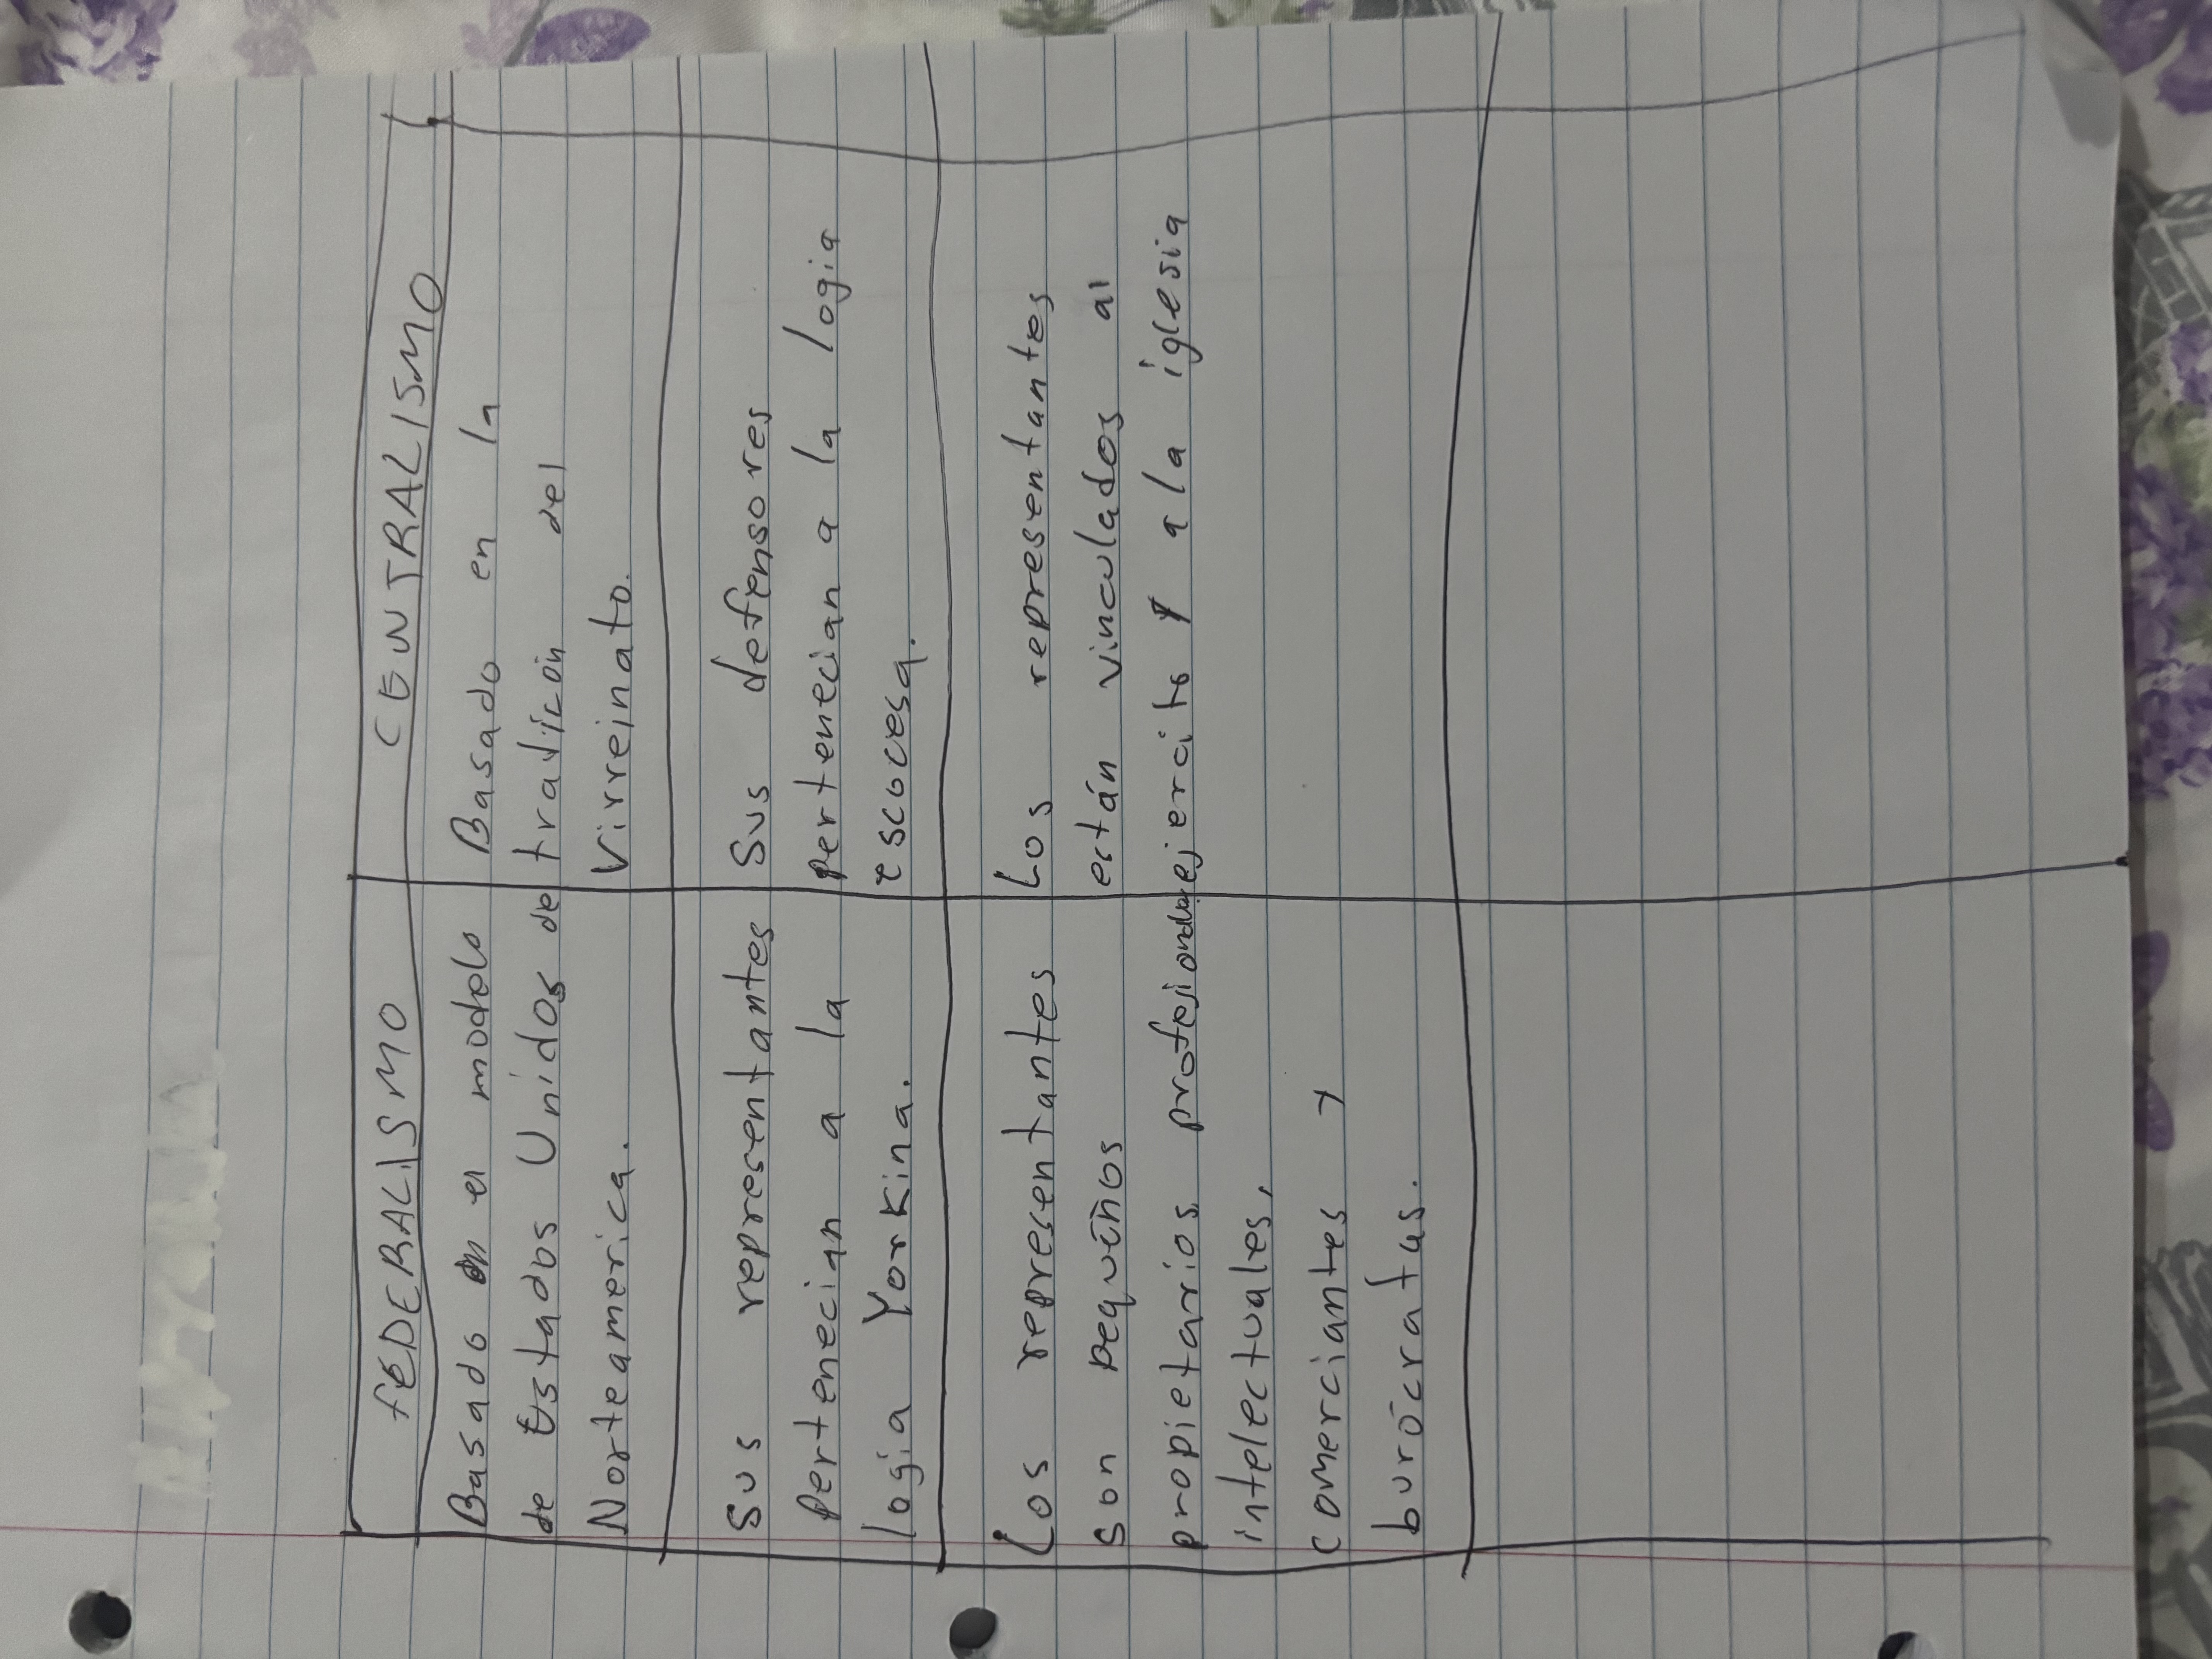 FEDERALISMO
CENTRALISMO
Basado en el modelo
de Estados Unidos de
Norteamerica.
Basado en la
tradición del
Virreinato.
Sus representantes
pertenecian a la
logia Yorkina.
Sus defensores
pertenecian a la logia
escocesa.
Los representantes
son pequeños
propietarios, profesionales,
intelectuales,
comerciantes y
burócratas.
Los representantes
están vinculados al
ejercito y a la iglesia